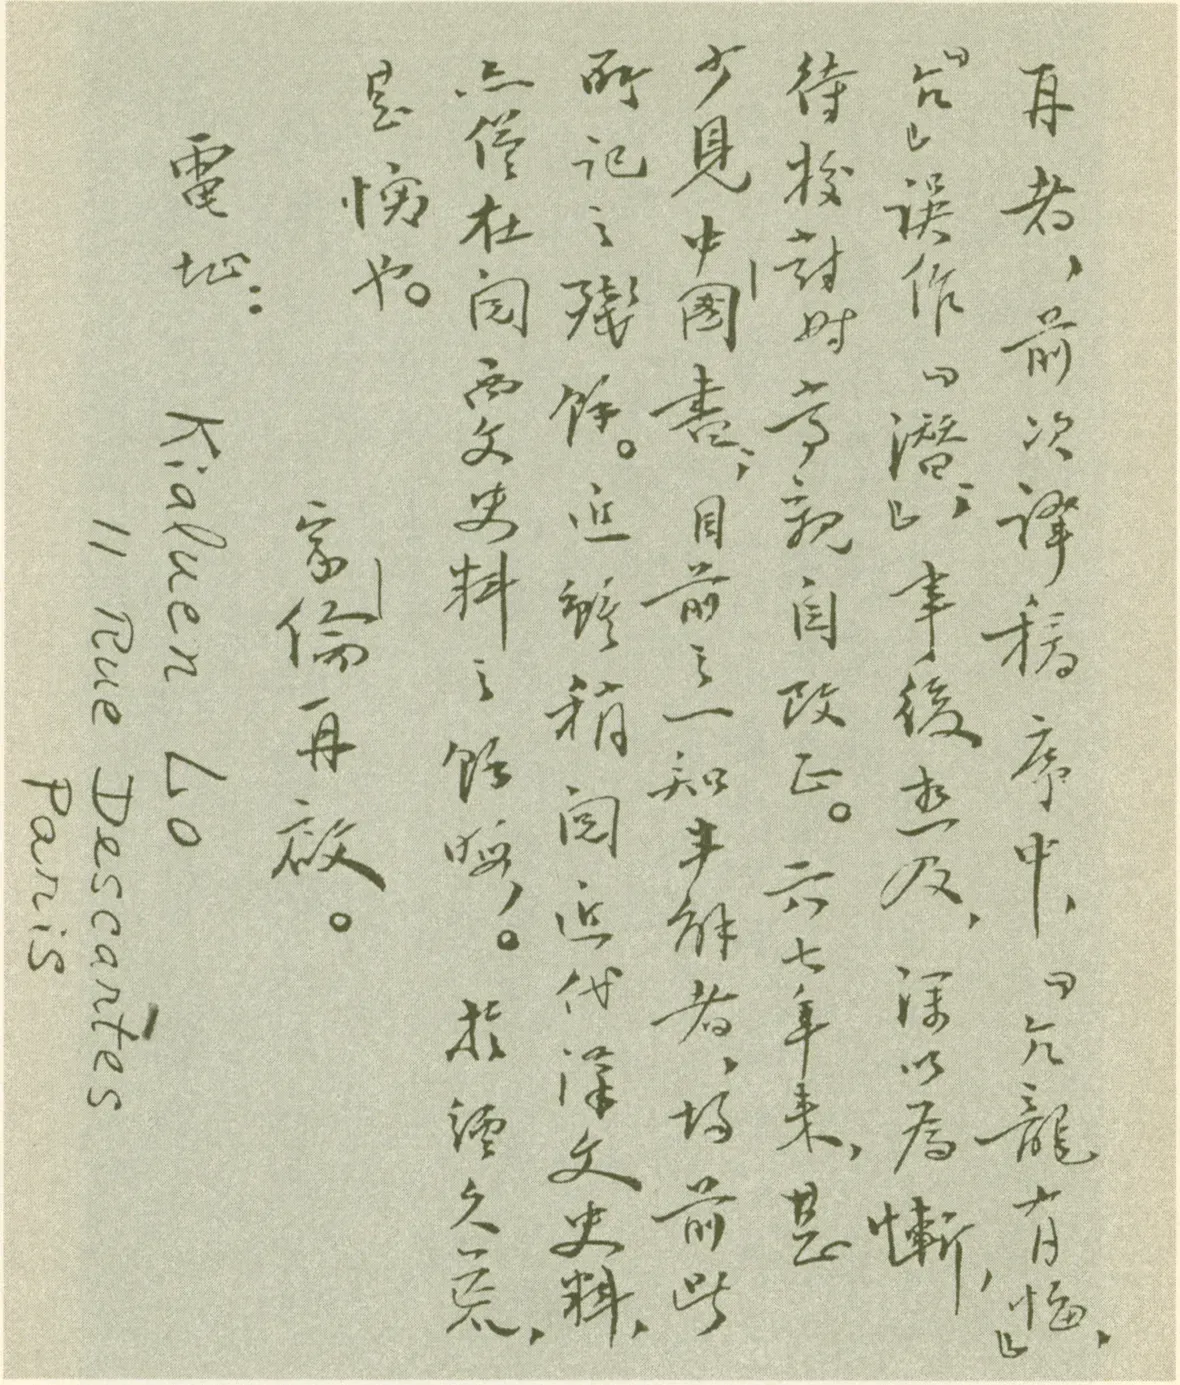 再者，前次譯稿序中，「亢龍有悔，」
「亢」誤作「潛；」事後想及，深以為慚，
待校對時當親自改正。六七年來，甚
少見中國書；目前之一知半解者，均前此
所記之殘餘。近雖稍閱近代漢文史料，
亦僅在閱西文史料之餘暇，。於譯久荒，
是懶也。
家倫再啟。
電址：Kialuen Lo
11 Rue Descartes
Paris